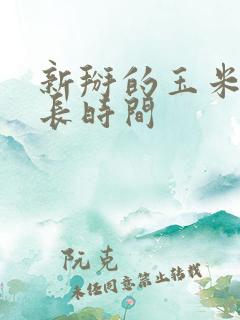 新掰的玉米
長時間
阮克
未經同意禁止轉載